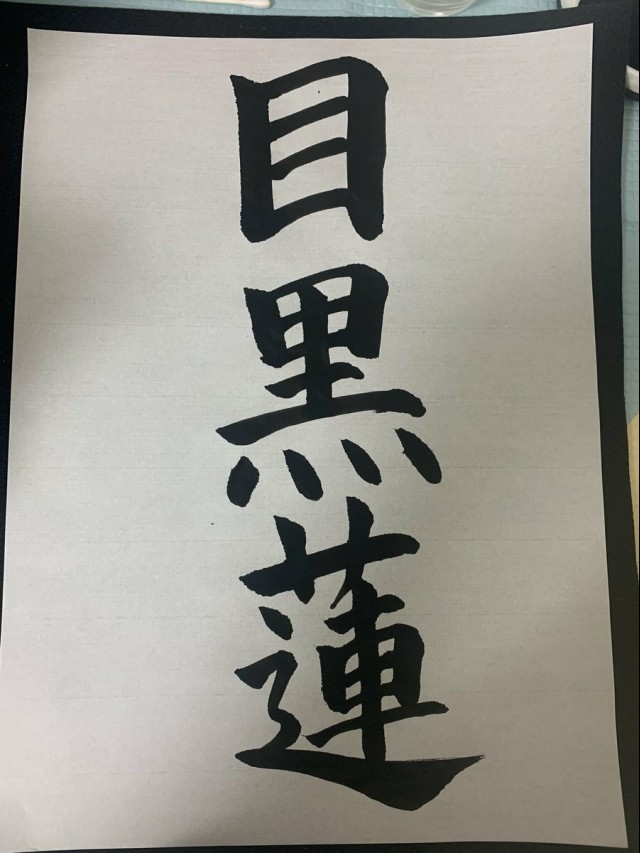 目黒蓮